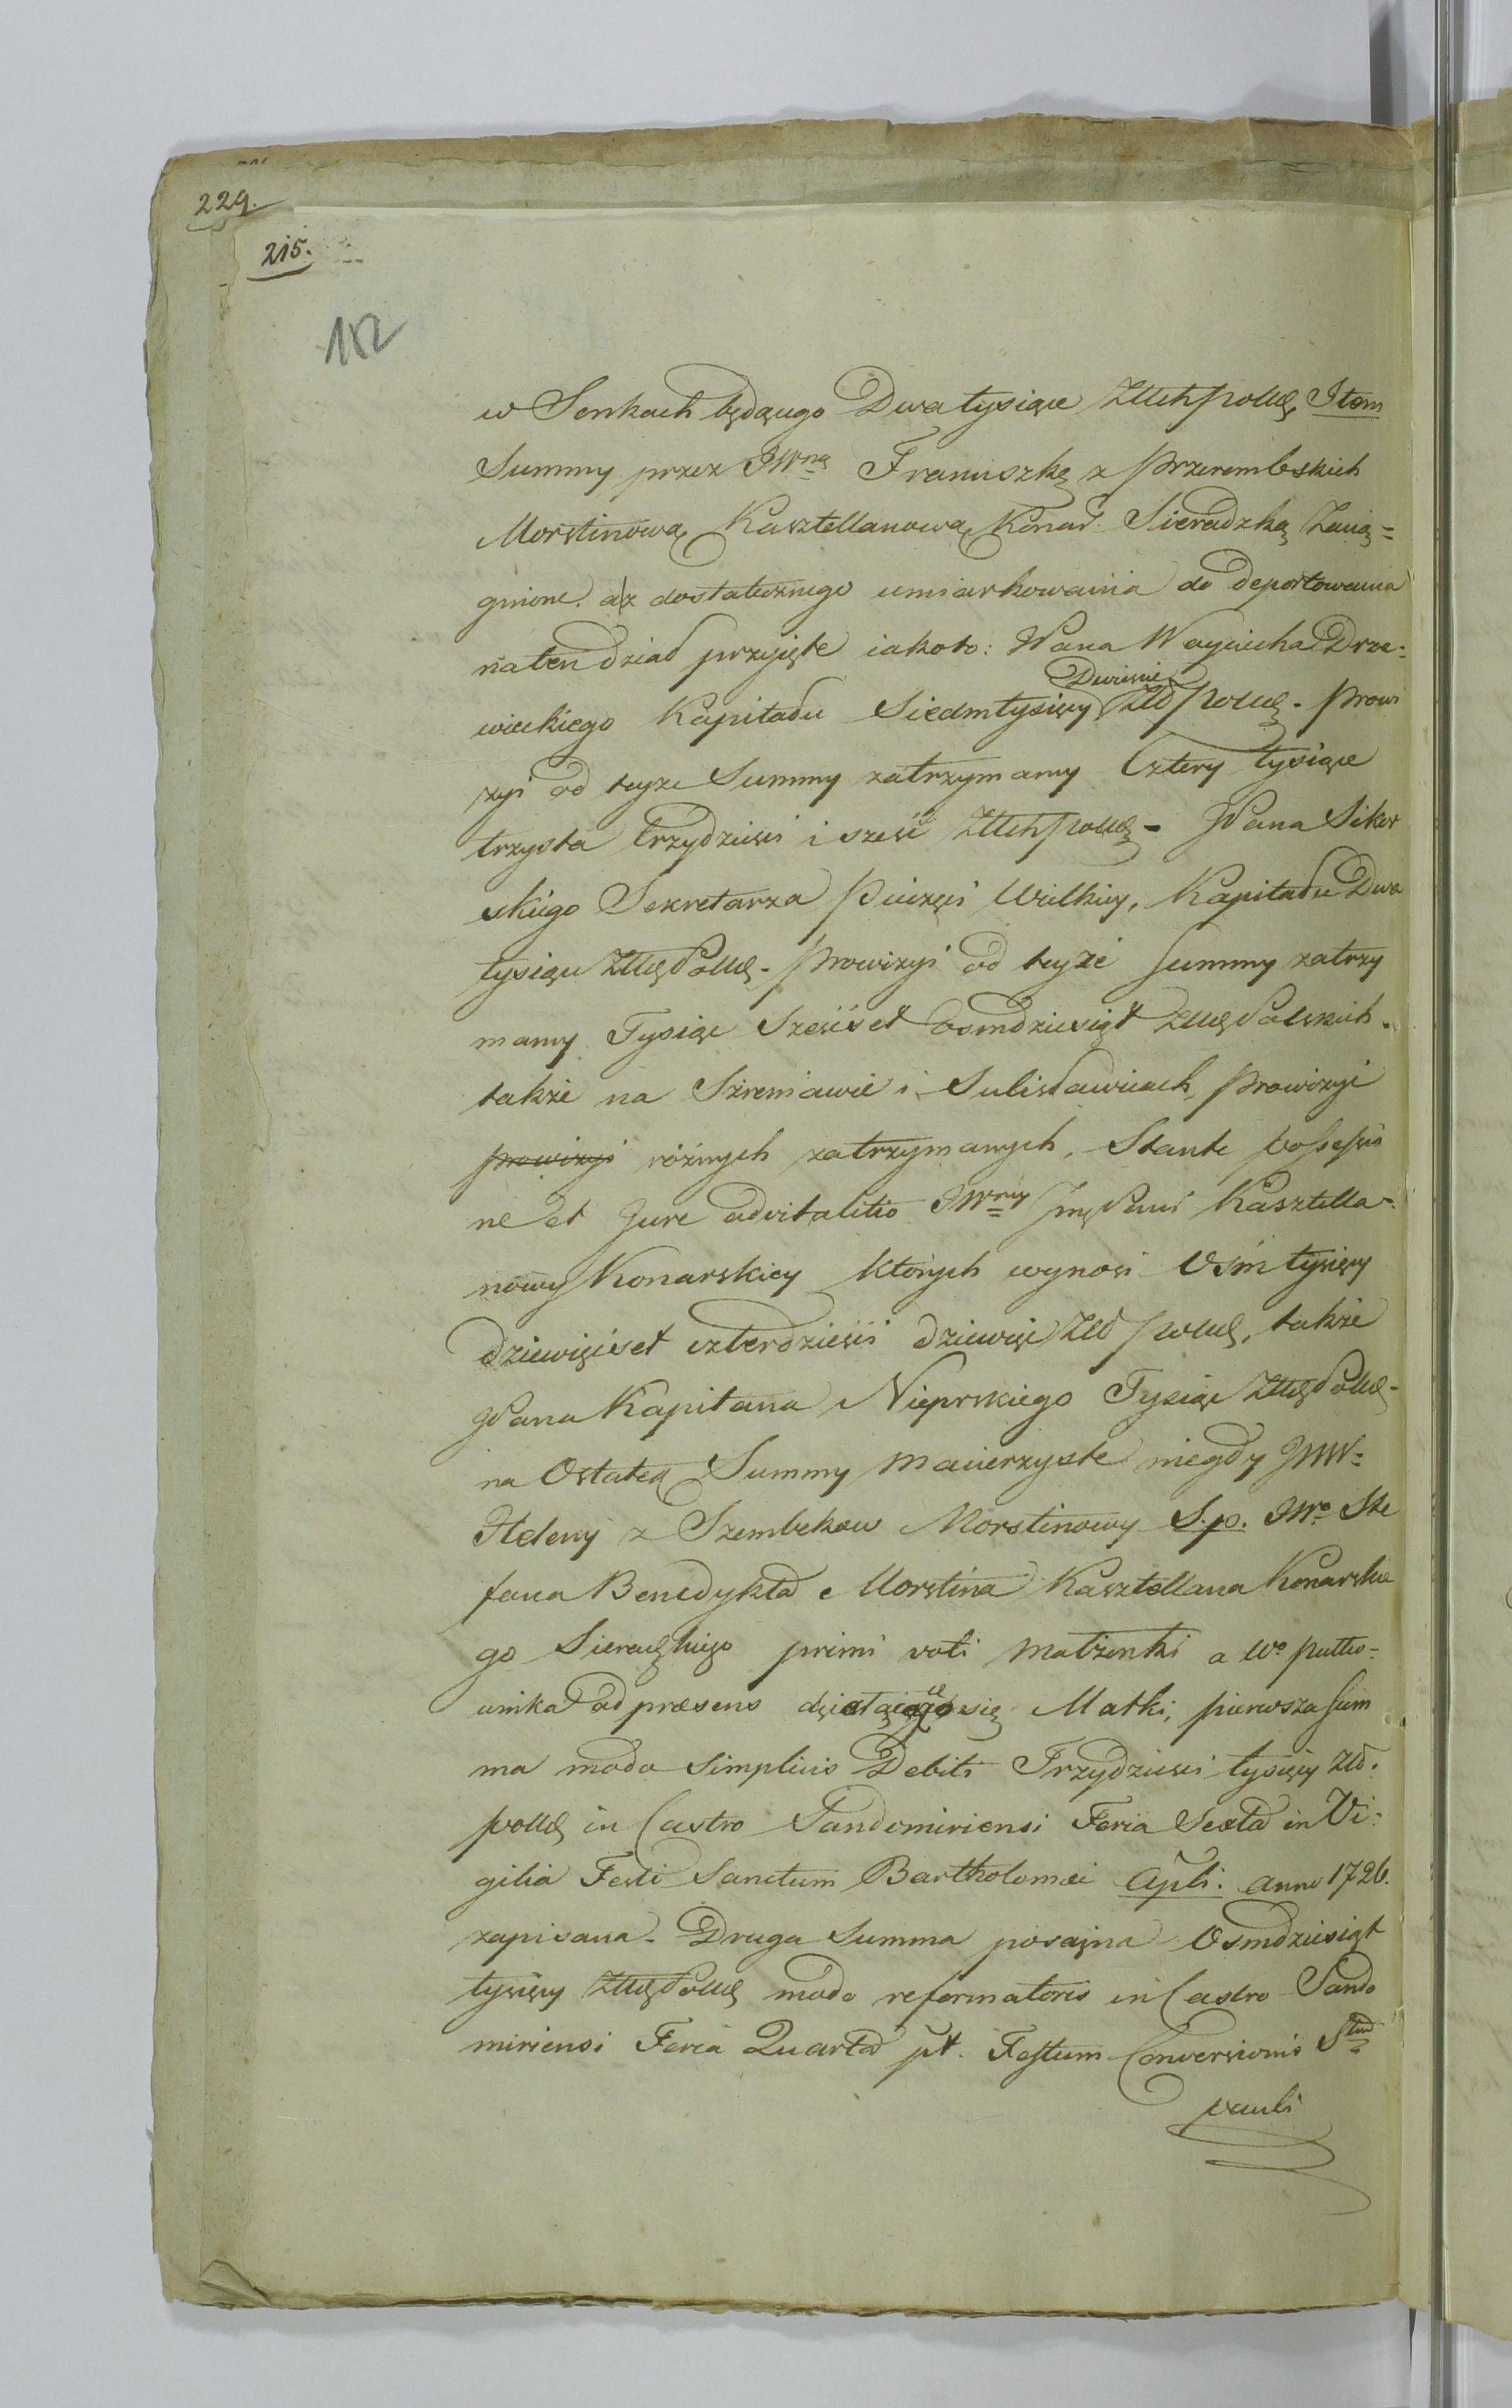 229.
215.
152
w Senkach będącego Dwa tysiące Złłch polln, Item
Summy przez JWną Franciszkę z Przerembskich
Morstinową Kasztellanową Konar. Sieradzką Zacią=
gnione. a z dostatecznego umiarkowania do deportowania
na ten dział przyięte iakoto: Pana Woyciecha Drze=
wieckiego Kapitału Siedmtysięcy Dwieście Złł polln. Prowi
zyi od teyże Summy zatrzymaney Cztery tysiące
trzysta trzydzieści i sześć Złłch polln - JPana Sikor
skiego Sekretarza Pieczęci Wielkiey, Kapitału Dwa
tysiące Złln Polln - Prowizyi od teyże Summy zatrzy
maney Tysiąc Sześćset Osmdziesiąt Złln Polskich.
także na Szreniawie i Sulisławicach, Prowizyi
prowizyi różnych zatrzymanych, Stante possessio
ne et Jure advitalitio JWney JmPani Kasztella=
nowy Konarskiey których wynosi Ośm tysięcy
dziewięćset czterdzieści dziewięć Złł polln, także
JPana Kapitana Nieprskiego Tysiąc Złln Polln -
na Ostatek Summy Macierzyste niegdy JWW=
Heleny z Szembekow Morstinowy S.p. JWo Ste
fana Benedykta Morstina Kasztellana Konarskie
go Sieradzkiego primi voti Małżonki a Wo Pułko=
wnika ad præsens dzielącego się Matki, pierwsza Sum
ma modo simplicis Debiti Trzydzieści tysięcy Zł.
polln in Castro Sandomiriensi Feria Sexta in Vi=
gilia Festi Sanctum Bartholomæi Apli. anno 1726.
zapisana - Druga Summa posażna Osmdziesiąt
tysięcy Złln Polln modo reformatoris in Castro Sando
miriensi Feria Quarta pt. Festum Conversionis Sti
Pauli